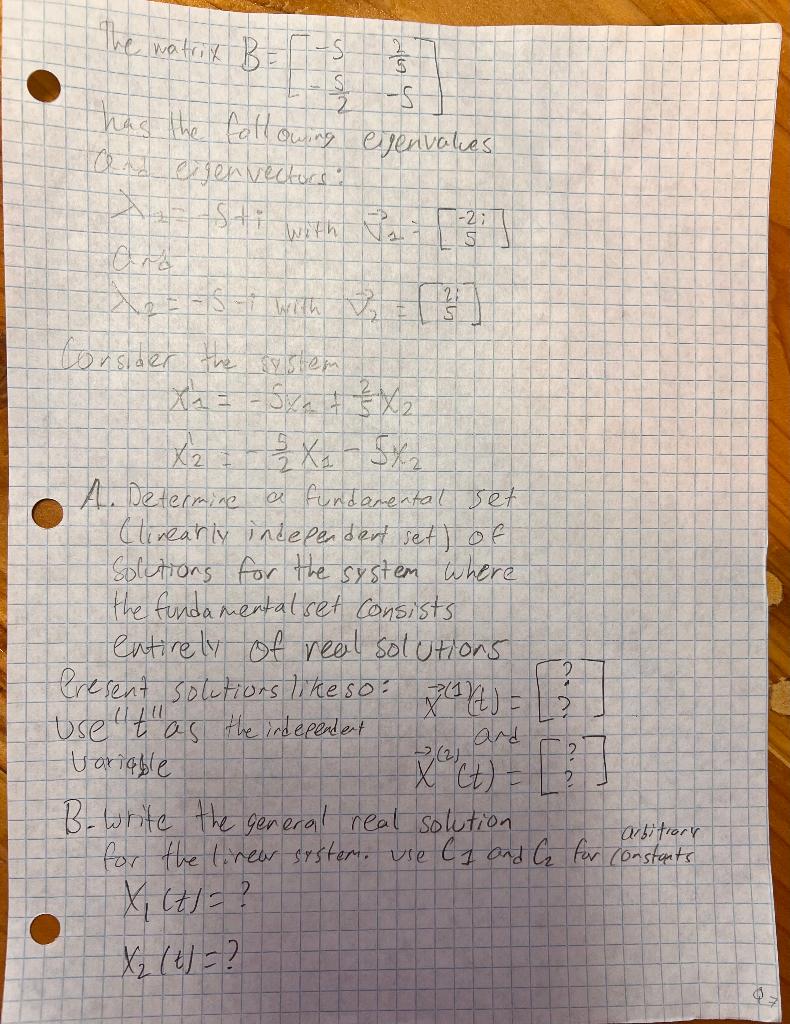 The matrix B = [ -5 2/5
-5/2 -5 ]
has the following eigenvalues
and eigenvectors:
λ1 = -5+i with v⃗1 = [ -2i
5 ]
and
λ2 = -5-i with v⃗2 = [ 2i
5 ]
Consider the system
x'1 = -5x1 + 2/5 x2
x'2 = -5/2 x1 - 5x2
A. Determine a fundamental set
(linearly independent set) of
solutions for the system where
the fundamental set consists
entirely of real solutions
Present solutions like so: x⃗(1)(t) = [ ?
? ]
use "t" as the independent
and
variable x⃗(2)(t) = [ ?
? ]
B. Write the general real solution
for the linear system. use C1 and C2 for arbitrary constants
X1(t) = ?
X2(t) = ?
Q7